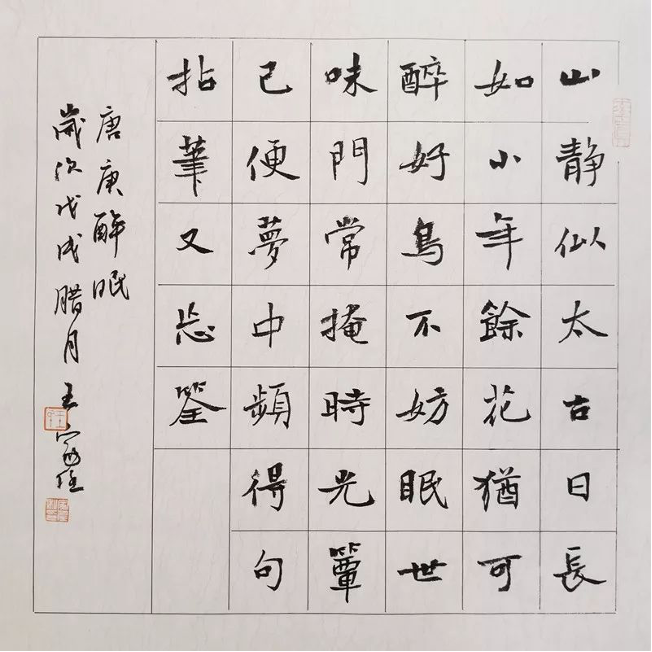 山静似太古日長
如小年餘花猶可
醉好鳥不妨眠世
味門常掩時光簟
已便夢中頻得句
拈筆又忘筌
唐庚醉眠
歲次戊戌腊月王